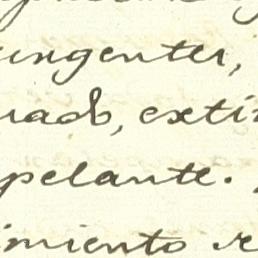 ungentes,
rado, exti
pelante.
imiento re